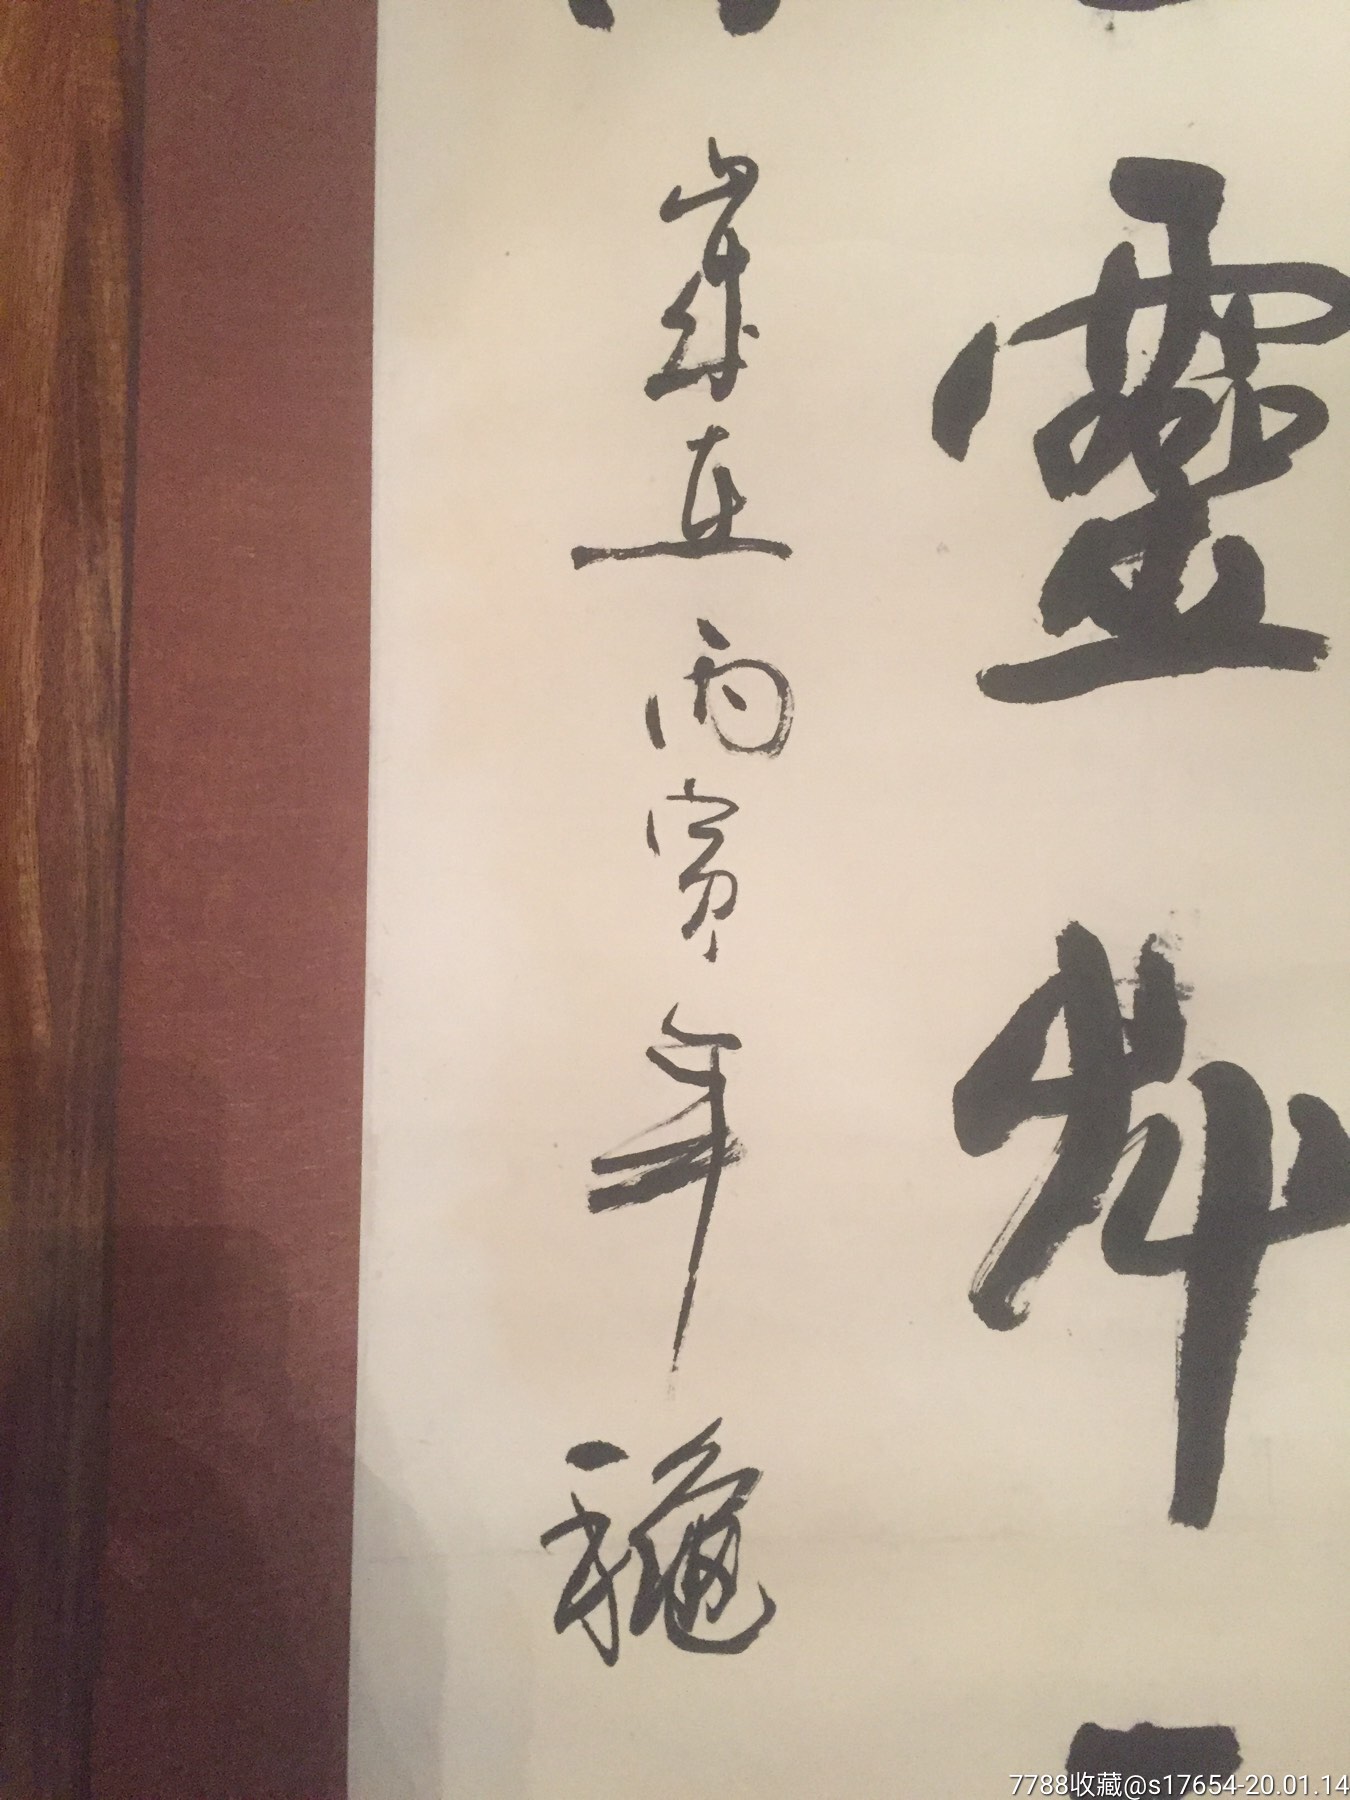 靈犀一
歲在丙寅年穐
7788收藏@s17654-20.01.14